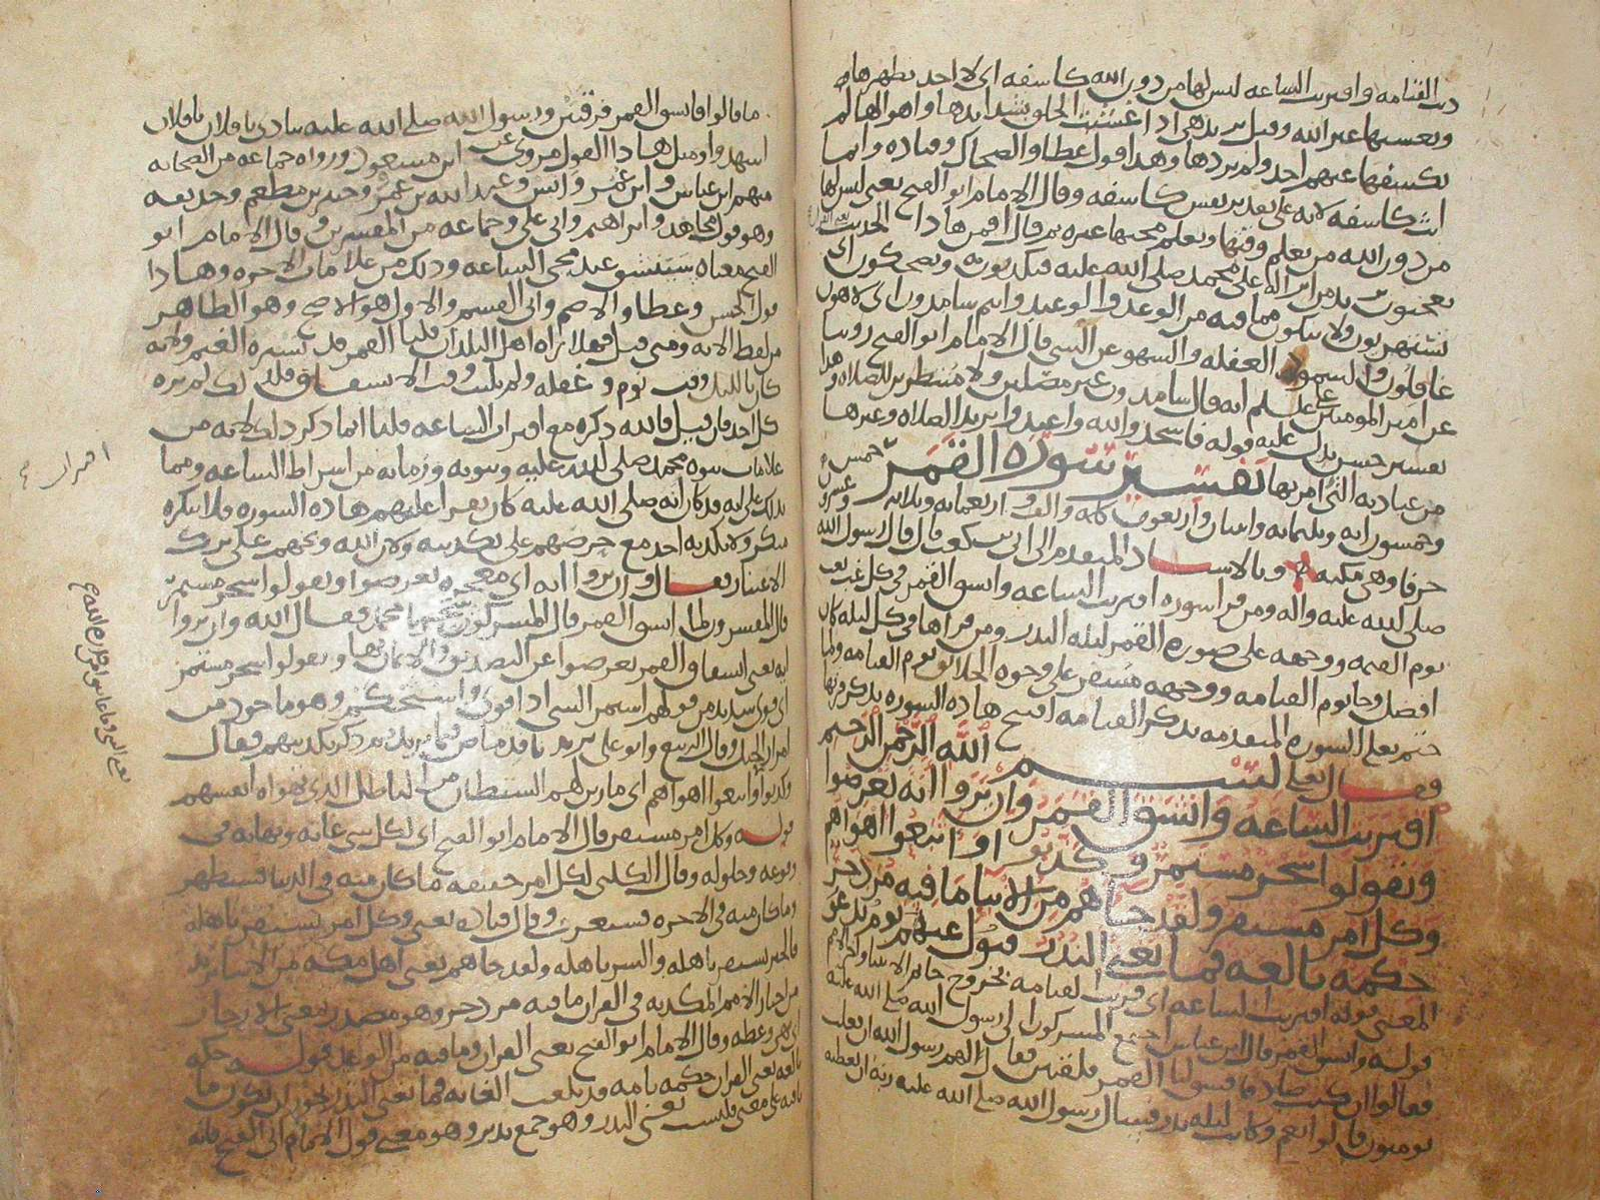 دنت القيامه واقتربت الساعه ليس لها من دون الله كاشفه اى لا احد يظهرها
ويعسبها غير الله وقيل يريد هى اذا غشيت الخلق بشدايدها واهوالها لم
يكشفها عنهم احد ولم يردها وهذا قول عطا والضحاك وقتاده وانما
انث كاشفه لانه على تقدير نفس كاشفه وقال الامام ابو الفتح يعنى ليس لها
من دون الله من يعلم وقتها ويعلم مجيها غيره ثم قال افمن هاذا الحديث
تعجبون يريد من انزاله على محمد صلى الله عليه فيكذبون به وتضحكون اى
تستهزون ولا تبكون مما فيه من الوعد والوعيد وانتم سامدون اى لاهون
غافلون والسمود الغفله والسهو عن الشى قال الامام ابو الفتح روينا
عن امير المومنين على عليه السلم انه قال سامدون غير مصلين ولا منتظرين للصلاه وهذا
تفسير حسن يدل عليه قوله فاسجدوا لله واعبدوا يريد الصلاه وغيرها
من عباديه التى امر بها تفسير سورة القمر خمس
وخمسون ايه وثلثمائه واثنان واربعون كلمه والف واربعمايه وثلاثه وعشرون
حرفا وهى مكيه وبالاسناد المتقدم الى ابى بن كعب قال قال رسول الله
صلى الله عليه واله ومن قرا سورة اقتربت الساعه وانشق القمر فى كل غب بعث
يوم القيمه ووجهه على صورة القمر ليله البدر ومن قراها فى كل ليله كان
افضل وجا يوم القيامه ووجهه مسفر على وجوه الخلايق يوم القيامه ولما
ختم تعلى السوره المتقدمه بذكر القيامه افتتح هاذه السوره بذكر قربها
فقال تعلى بسم الله الرحمن الرحيم
اقتربت الساعه وانشق القمر وان يروا اية يعرضوا
ويقولوا سحر مستمر وكذبوا واتبعوا اهواهم
وكل امر مستقر ولقد جاهم من الانبا ما فيه مزدجر
حكمه بالغه فما تغنى النذر فتول عنهم يوم يدع
المعنى قوله اقتربت الساعه اى قربت القيامه بخروج خاتم الانبيا واخر الامم
قوله وانشق القمر قال ابن عباس اجتمع المشركون الى رسول الله صلى الله عليه
فقالوا ان كنت صادقا فشق لنا القمر فلقتين فقال لهم رسول الله ان فعلت
تومنون قالوا نعم وكانت ليله بدر فسال رسول الله صلى الله عليه ربه ان يعطيه
ما قالوا فانشق القمر فرقتين ورسول الله صلى الله عليه ينادى يا فلان يا فلان
اشهدوا ومثل هاذا القول مروى عن ابن مسعود ورواه جماعه من الصحابه
منهم ابن عباس وابن عمر وانس وعبد الله بن عمر وجبير بن مطعم وحذيفه
وهو قول مجاهد وابراهيم وابى على وجماعه من المفسرين وقال الامام ابو
الفتح معناه سينشق عند مجى الساعه وذلك من علامات الاخره وهاذا
قول الحسن وعطا والاصم وابى القسم والاول هو الاصح وهو الظاهر
من لفظ الايه ومتى قيل فهلا يراه اهل البلدان قلنا القمر قد يستره الغيم ولانه
كان بالليل وقت نوم وغفله ولم يلبث وقت الانشقاق فلذلك لم يره
كل احد فان قيل فالله ذكره مع اقتراب الساعه قلنا انما ذكر ذلك لانه من
علامات نبوه محمد صلى الله عليه ونبوته وزمانه من اشراط الساعه ومما
يدلك على انه قد كان انه صلى الله عليه كان يقرا عليهم هاذه السوره فلا ينكره
منكر ولا يكذبه احد مع حرصهم على تكذيبه ولان الله وبخهم على ترك
الاعتبار فقال وان يروا ايه اى معجزه يعرضوا ويقولوا سحر مستمر
قال المفسرون لما انشق القمر قال المشركون سحرنا محمد فقال الله وان يروا
ايه يعنى انشقاق القمر يعرضوا عن التصديق والايمان بها ويقولوا سحر مستمر
اى قوى شديد من قولهم استمر الشى اذا قوى واستحكم وهو ماخوذ من
امرار الحبل وقال الربيع وابو على يريد نافذ ماض ثم ذكر تكذيبهم فقال
وكذبوا واتبعوا اهواهم اى ما زين لهم الشيطان من الباطل الذى تهواه انفسهم
قوله وكل امر مستقر قال الامام ابو الفتح اى لكل شى غايه ونهايه فى
وقوعه وحلوله وقال الكلبى لكل امر حقيقه ما كان منه فى الدنيا فسيظهر
وما كان منه فى الاخره فسيعرف وقال قتاده يعنى وكل امر يستقر باهله
فالخير يستقر باهله والشر باهله ولقد جاهم يعنى اهل مكه من الانبا يريد
من اخبار الامم المكذبه فى القران ما فيه مزدجر وهو مصدر بمعنى الازدجار
اى نهى وعظه وقال الامام ابو الفتح يعنى القران وما فيه من الوعد قوله حكمه
بالغه يعنى القران حكمه تامه قد بلغت الغايه فما تغنى النذر يجوز ان يكون ما
نافيه على معنى فليست تغنى النذر وهو جمع نذير وهو معنى قول الامام ابى الفتح فانه